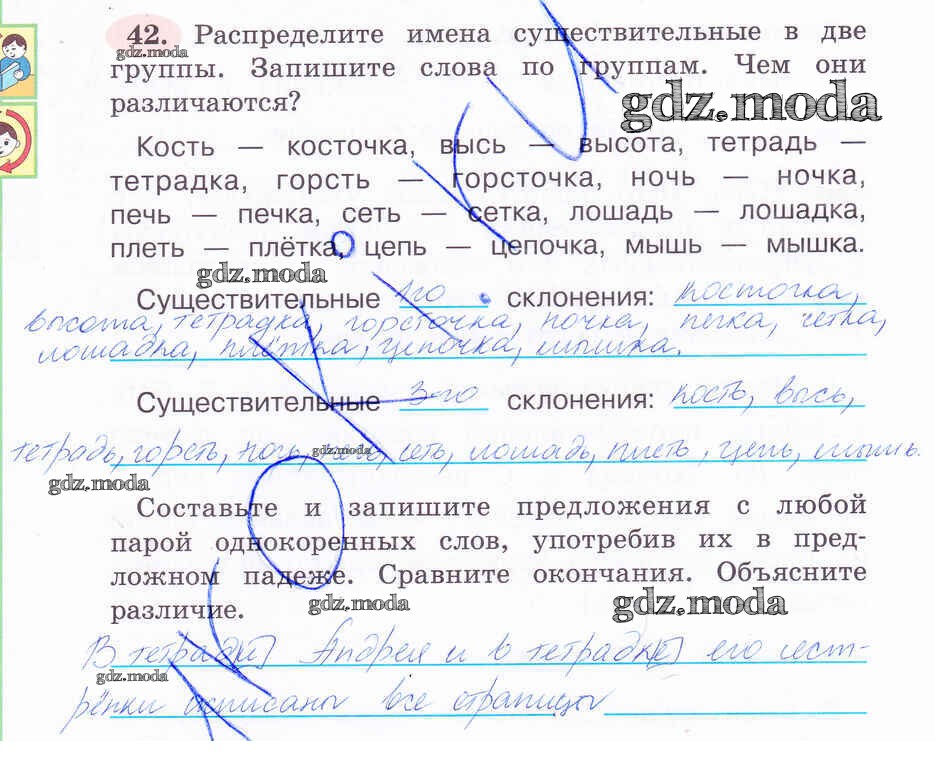 42. Распределите имена существительные в две
gdz.moda
группы. Запишите слова по группам. Чем они
gdz.moda
различаются?
Кость — косточка, высь — высота, тетрадь —
тетрадка, горсть — горсточка, ночь — ночка,
печь — печка, сеть — сетка, лошадь — лошадка,
плеть — плётка, цепь — цепочка, мышь — мышка.
gdz.moda
Существительные 1-го склонения: косточка,
высота, тетрадка, горсточка, ночка, печка, сетка,
лошадка, плётка, цепочка, мышка.
Существительные 3-го склонения: кость, высь,
тетрадь, горсть, ночь, сеть, лошадь, плеть, цепь, мышь.
gdz.moda
gdz.moda
Составьте и запишите предложения с любой
парой однокоренных слов, употребив их в пред-
ложном падеже. Сравните окончания. Объясните
различие.
gdz.moda
gdz.moda
В тетради Андрея и в тетрадке его сест-
gdz.moda
рёнки исписаны все страницы